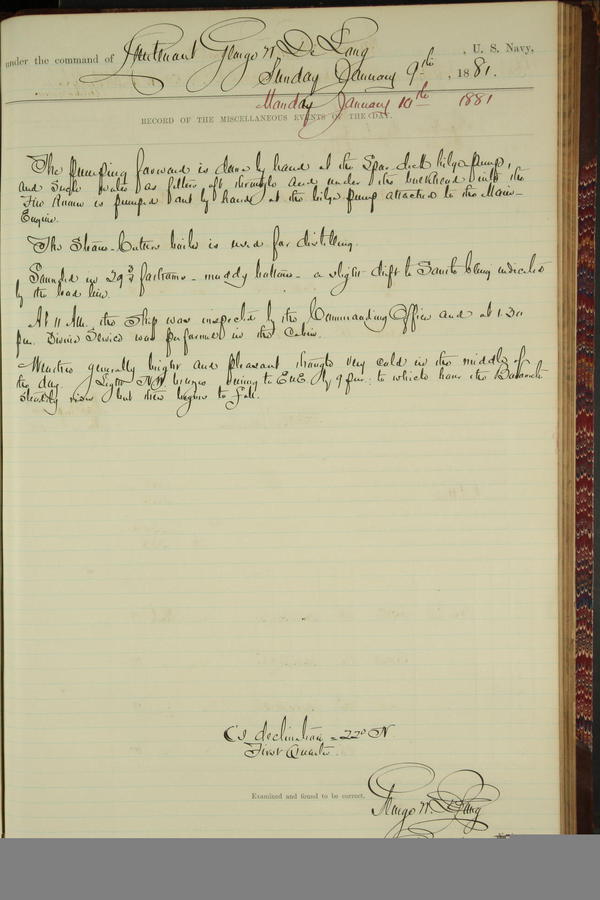 under the command of Lieutenant George W. De Long, U. S. Navy,
Sunday January 9th, 1881.
Monday January 10th 1881
RECORD OF THE MISCELLANEOUS EVENTS OF THE DAY.
The pumping forward is done by hand at the Spar deck bilge pump,
and such water as filters aft through and under the bulkhead into the
Fire Room is pumped out by hand at the bilge pump attached to the Main
Engine.
The Steam-Cutters boiler is used for distilling.
Sounded in 29 3/4 fathoms - muddy bottom - a slight drift to South being indicated
by the lead line.
At 11 AM. the Ship was inspected by the Commanding Officer and at
pm. Divine Service was performed in the Cabin.
Weather generally bright and pleasant though very cold in the middle of
the day. Light breezes to by 9 pm: to which hour the Barometer
steadily rises but then begins to fall.
C's declination = 22° N
First Quarter
Examined and found to be correct,
George W. De Long